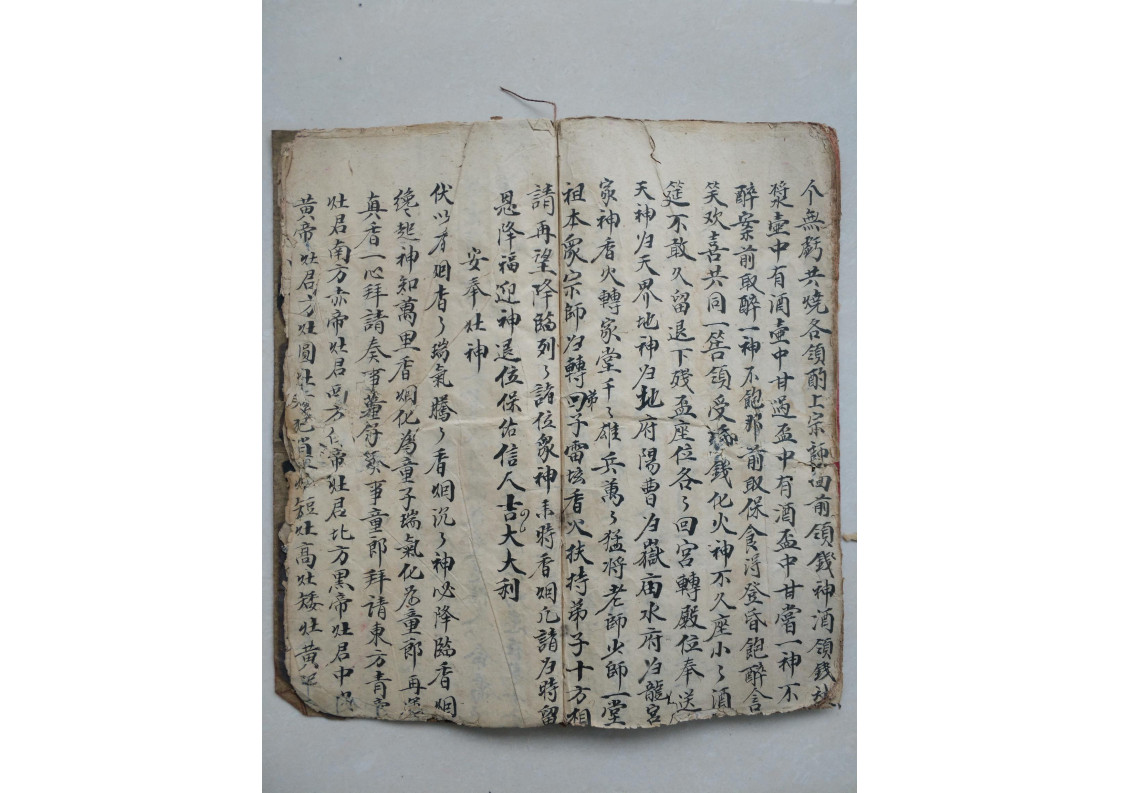 个無虧共燒各領酌上宗師面前領錢神酒領錢
漿壺中有酒壺中甘過盃中有酒盃中甘嘗一神不
醉案前取醉一神不飽那前取保食得登昏飽醉含
笑欢喜共同一筶領受錢化火神不久座小〻酒
筵不敢久留退下殘盃座位各〻回宮轉殿位奉送
天神归天界地神归地府陽曹归嶽庙水府归龍宮
家神香火轉家堂千〻雄兵萬〻猛將老師少師一堂
祖本眾宗師归轉回弟子雷坛香火扶持弟子十方相
請再望降臨列〻諸位眾神來時香烟凡請归時留
恩降福迎神退位保佑信人吉大大利
安奉灶神
伏以香烟香〻瑞氣騰〻香烟沉〻神必降臨香烟
纔起神知萬里香烟化為童子瑞氣化为童郎再
真香一心拜請奏事童子奏事童郎拜請東方青帝
灶君南方赤帝灶君西方白帝灶君北方黑帝灶君中
黄帝灶君方灶圆灶短灶高灶矮灶黄